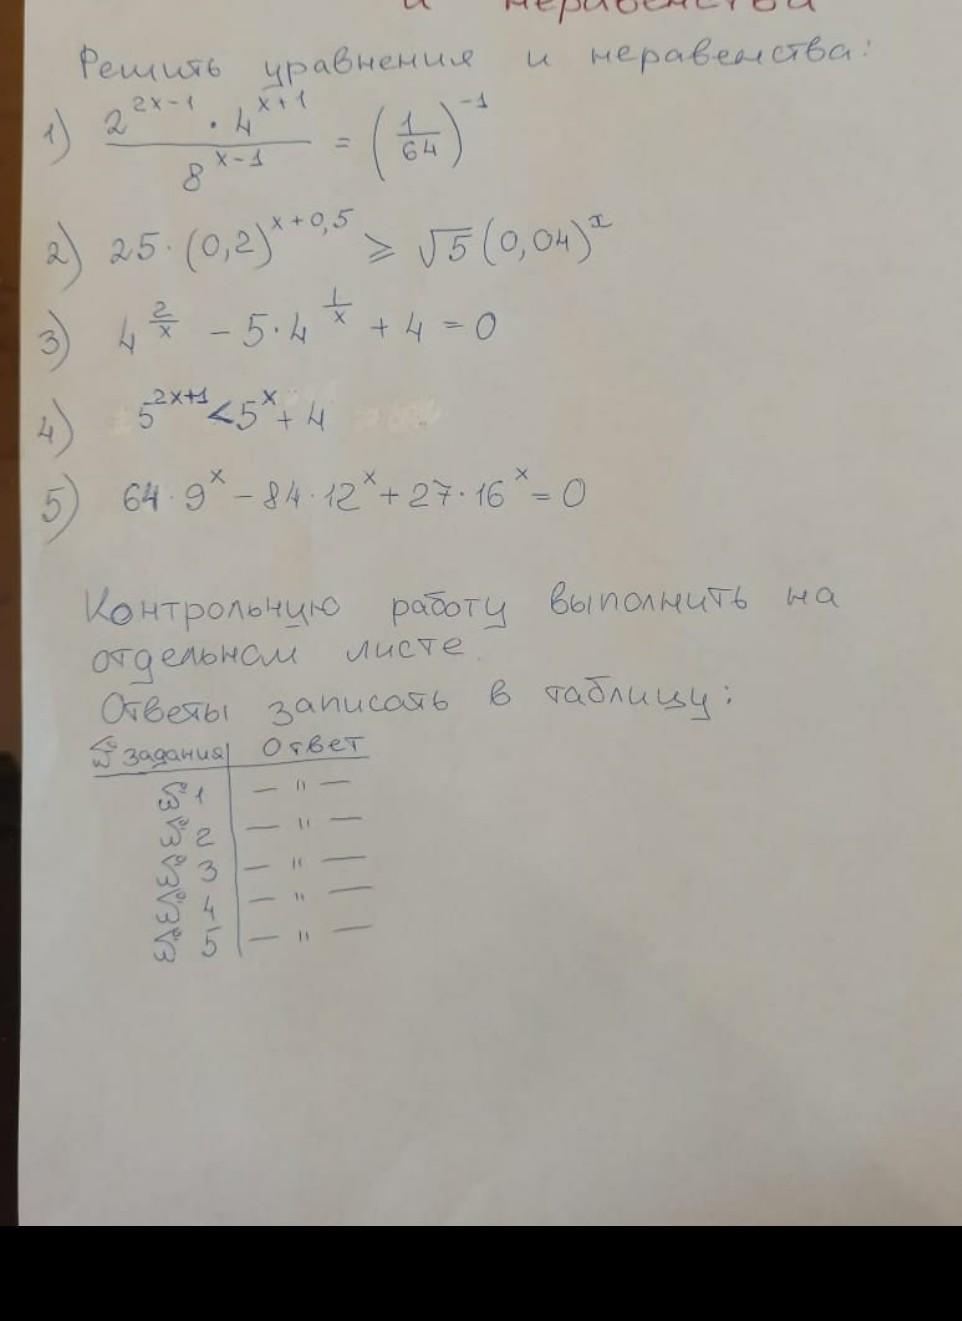 и неравенства
Решить уравнения и неравенства:
1) \frac{2^{2x-1} \cdot 4^{x+1}}{8^{x-1}} = \left(\frac{1}{64}\right)^{-1}
2) 25 \cdot (0,2)^{x+0,5} \geqslant \sqrt{5}(0,04)^{x}
3) 4^{\frac{2}{x}} - 5 \cdot 4^{\frac{1}{x}} + 4 = 0
4) 5^{2x+1} < 5^{x} + 4
5) 64 \cdot 9^{x} - 84 \cdot 12^{x} + 27 \cdot 16^{x} = 0
Контрольную работу выполнить на
отдельном листе.
Ответы записать в таблицу:
№ задания | Ответ
№ 1 — " —
№ 2 — " —
№ 3 — " —
№ 4 — " —
№ 5 — " —